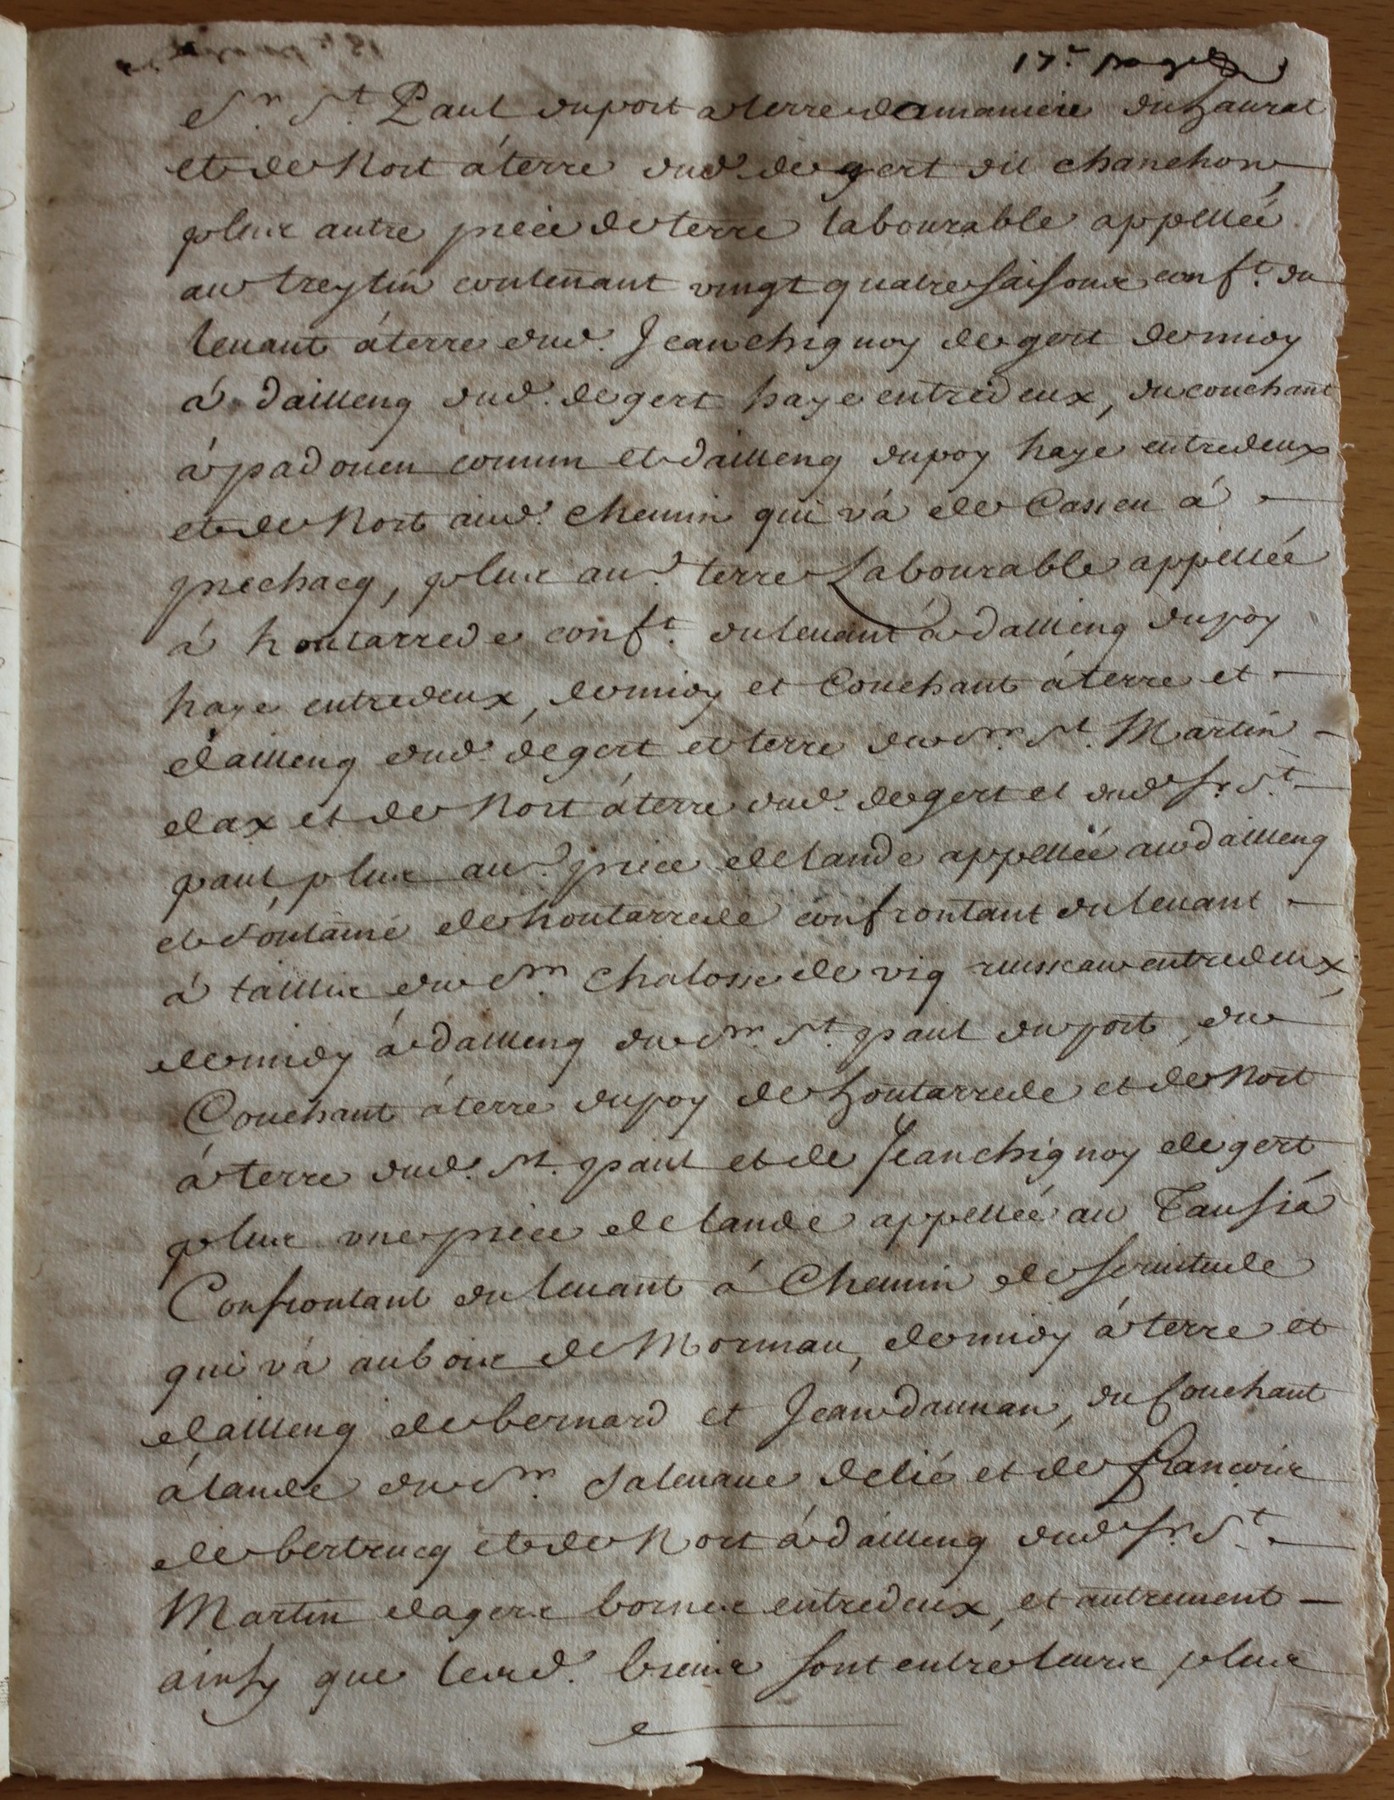 17.e page
Sr. St. Paul duport a terre damaniere du haurat
et de Nort á terre dud. degert dit chanchon,
plus autre piece de terre labourable appellée
au treytin contenant vingt quatre saisons conft. du
levant á terre dud. Jeanchignoy degert de midy
á dailleng dud. degert haye entredeux, du couchant
á padouen comun et dailleng dupoy haye entredeux
et de Nort aud. chemin qui vá de Cassen á
prechacq, plus au.e terre Labourable appellée
á houtarrede conft. du levant á dailleng dupoy
haye entredeux, de midy et Couchant á terre et
dailleng dud. degert et terre du Sr. St. Martin
dax et de Nort á terre dud. degert et dud. Sr. St.
paul plus au.e piece de lande appellée au dailleng
et fontaine de houtarrede confrontant du levant
á taillis du Sr. Chalosse de vig ruisseau entredeux,
de midy á dailleng du Sr. St. paul duport, du
Couchant á terre dupoy de houtarrede et de Nort
á terre dud. St. paul et de Jeanchignoy degert
plus une piece de lande appellée au Tausiá
Confrontant du levant á Chemin de servitude
qui vá au bois de Mormau, de midy á terre et
dailleng de bernard et Jean daunan, du Couchant
á lande du Sr. Salenave delié et de françois
de bertrucq et de Nort á dailleng dud. Sr. St.
Martin dages bornes entredeux, et autrement
ainsy que lesd. biens sont entre leurs plus